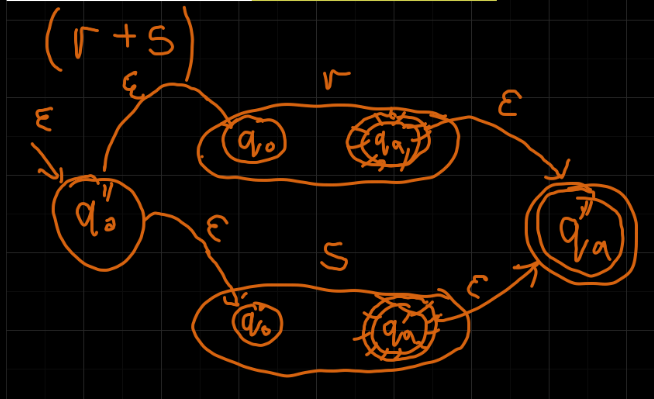 (r + s)
ε
ε
r
ε
q₀
qₐ
q₀''
ε
qₐ''
s
ε
q₀'
qₐ'